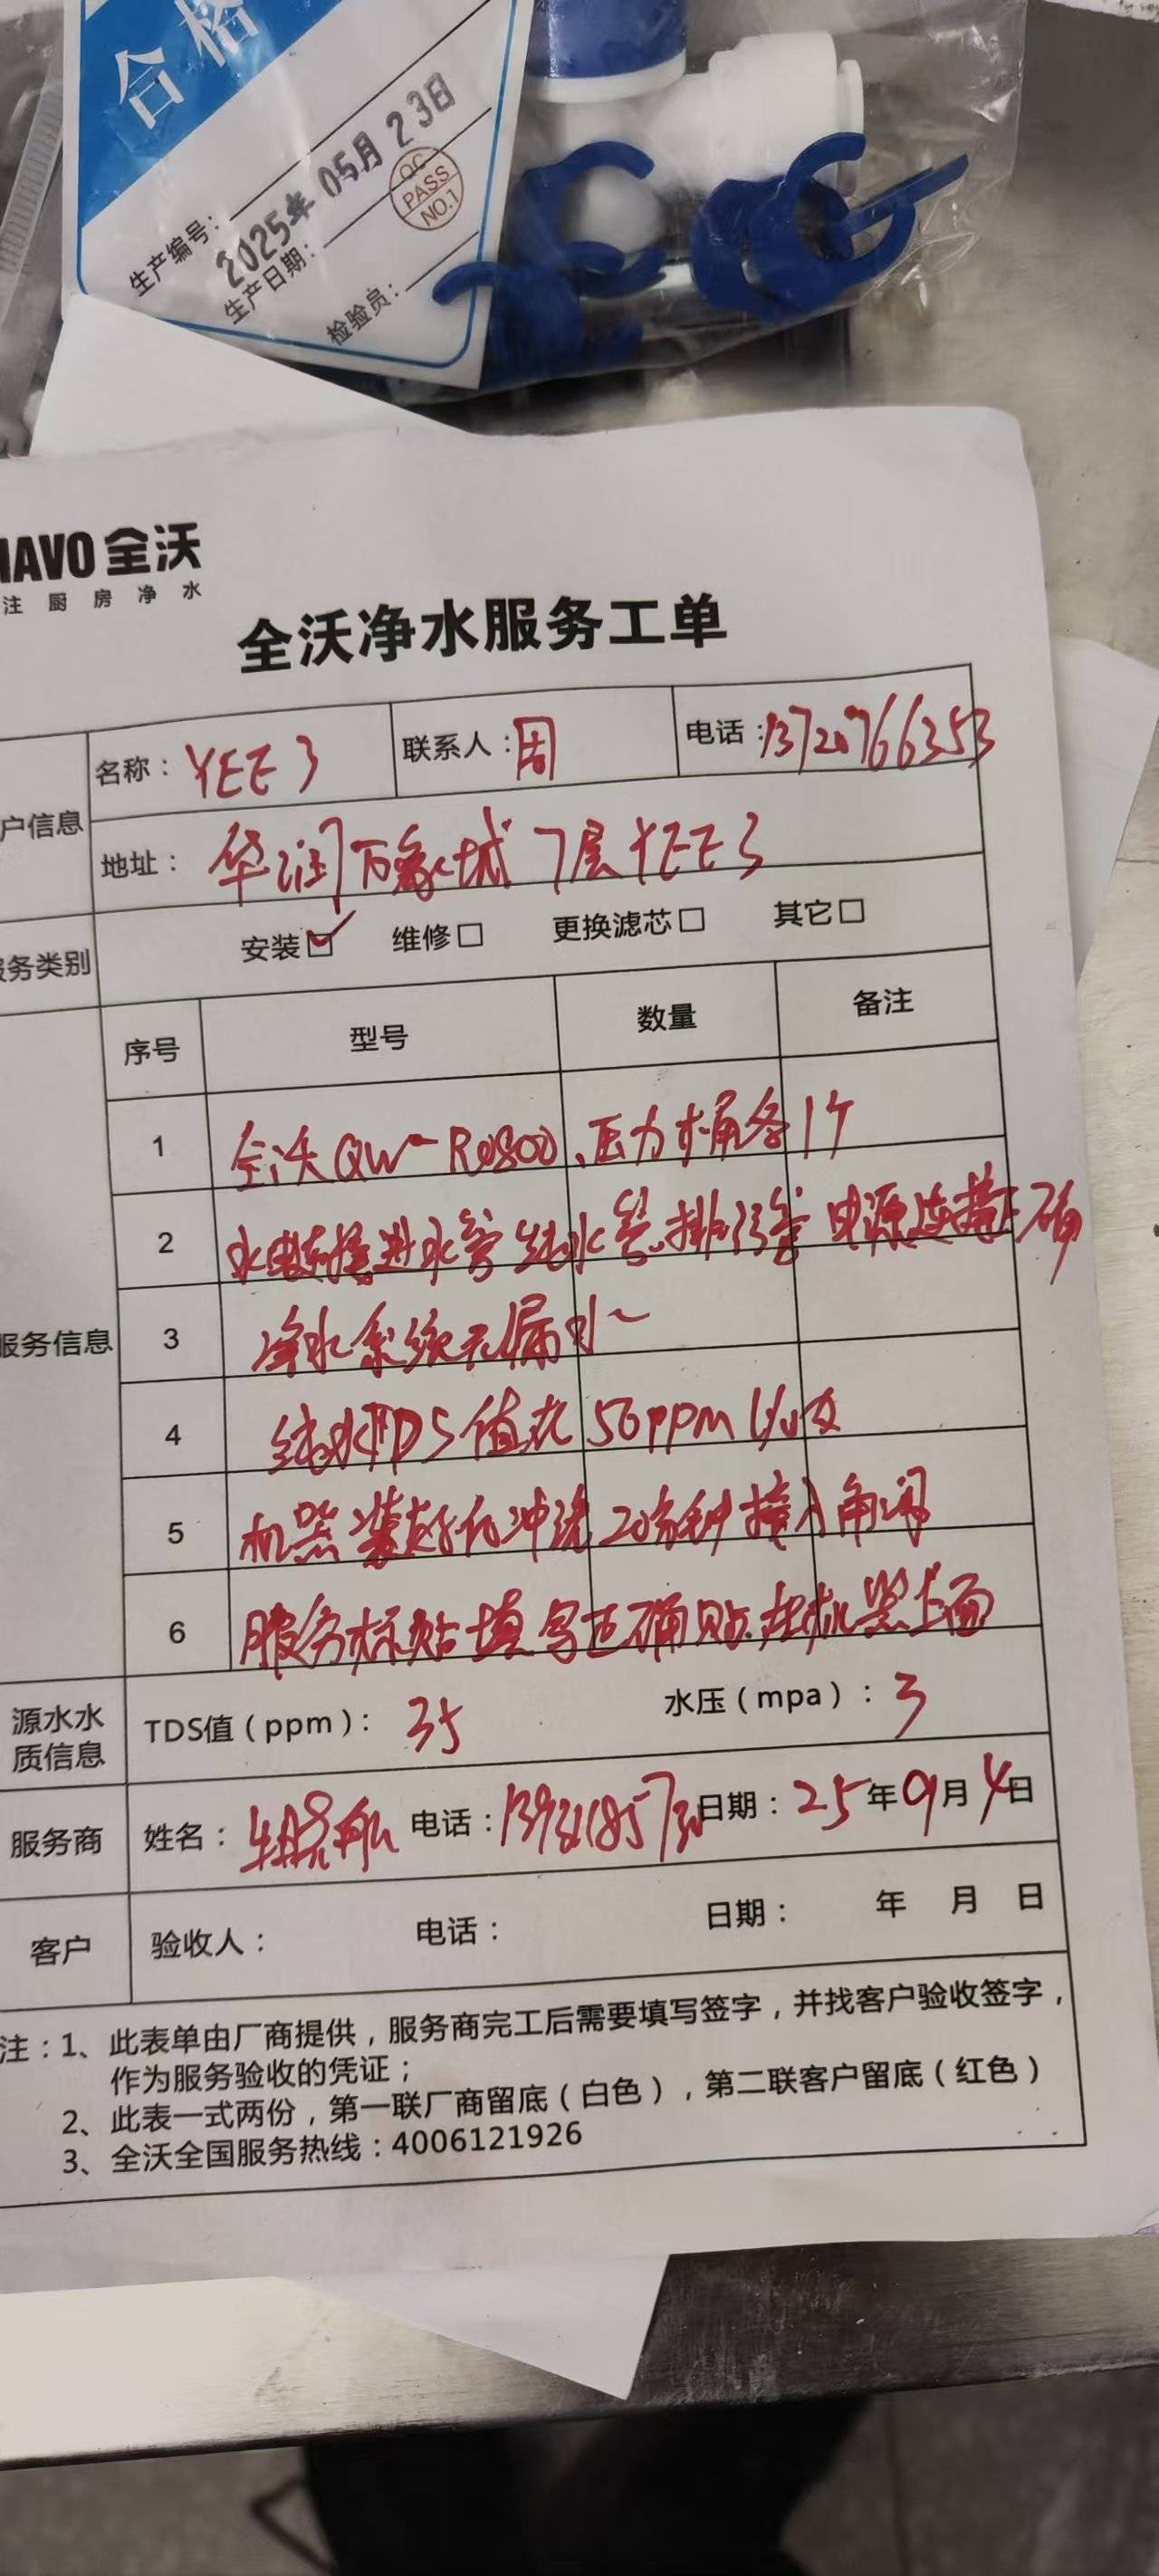 合格
生产编号：
2025年 05月 23日
生产日期：
QC
PASS
NO.1
检验员：
IAVO 全沃
注厨房净水
全沃净水服务工单
户信息
名称：YEE 3
联系人：周
电话：13720766353
地址：华润万象城 7层 YEE 3
服务类别
安装☑ 维修□ 更换滤芯□ 其它□
服务信息
序号 型号 数量 备注
1 全沃QW-RO800、压力桶各1个
2 水电连接进水管 纯水管 排污管 电源连接正确
3 净水系统无漏水
4 纯水TDS值在50ppm以内
5 机器装好后冲洗20分钟接入角阀
6 服务标贴填写正确贴在机器上面
源水水质信息
TDS值（ppm）：35
水压（mpa）：3
服务商
姓名：
电话：
日期：25年9月4日
客户
验收人：
电话：
日期： 年 月 日
注：1、此表单由厂商提供，服务商完工后需要填写签字，并找客户验收签字，
作为服务验收的凭证；
2、此表一式两份，第一联厂商留底（白色），第二联客户留底（红色）
3、全沃全国服务热线：4006121926